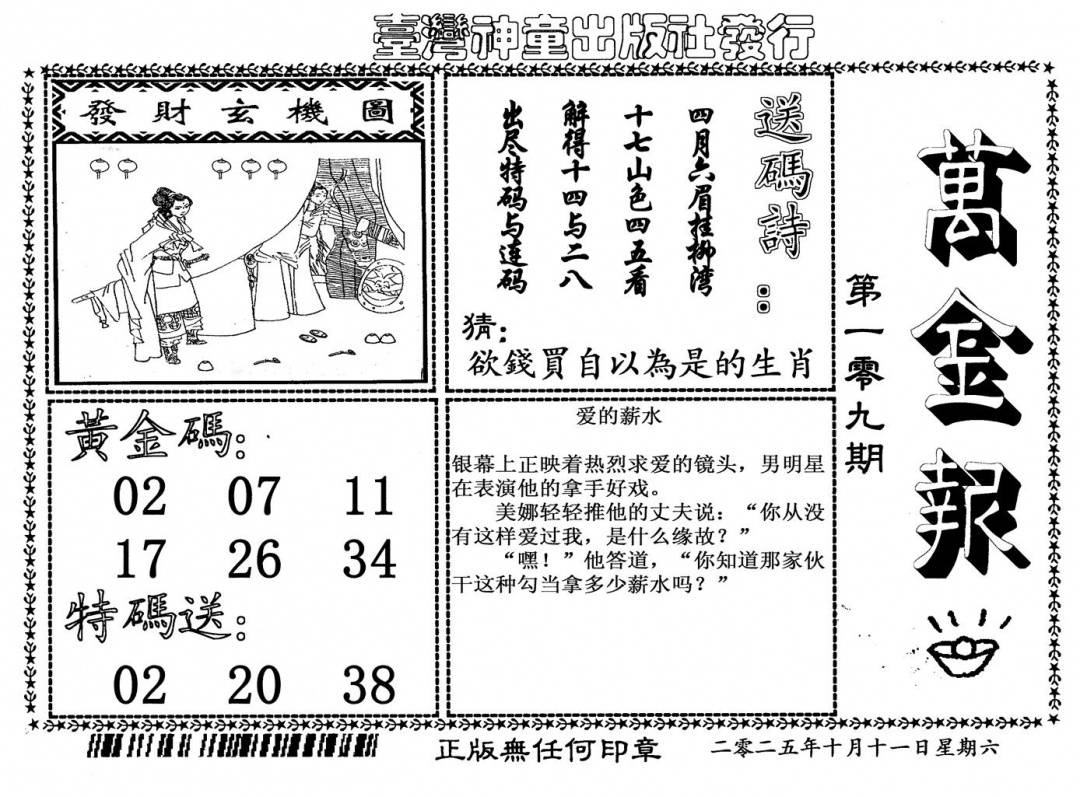 臺灣神童出版社發行
發財玄機圖
送碼詩：
四月六眉挂柳湾
十七山色四五看
解得十四与二八
出尽特码与连码
猜：
欲錢買自以為是的生肖
萬金報
第一零九期
黃金碼：
02 07 11
17 26 34
特碼送：
02 20 38
爱的薪水
银幕上正映着热烈求爱的镜头，男明星
在表演他的拿手好戏。
美娜轻轻推他的丈夫说：“你从没
有这样爱过我，是什么缘故？”
“嘿！”他答道，“你知道那家伙
干这种勾当拿多少薪水吗？”
正版無任何印章
二零二五年十月十一日星期六